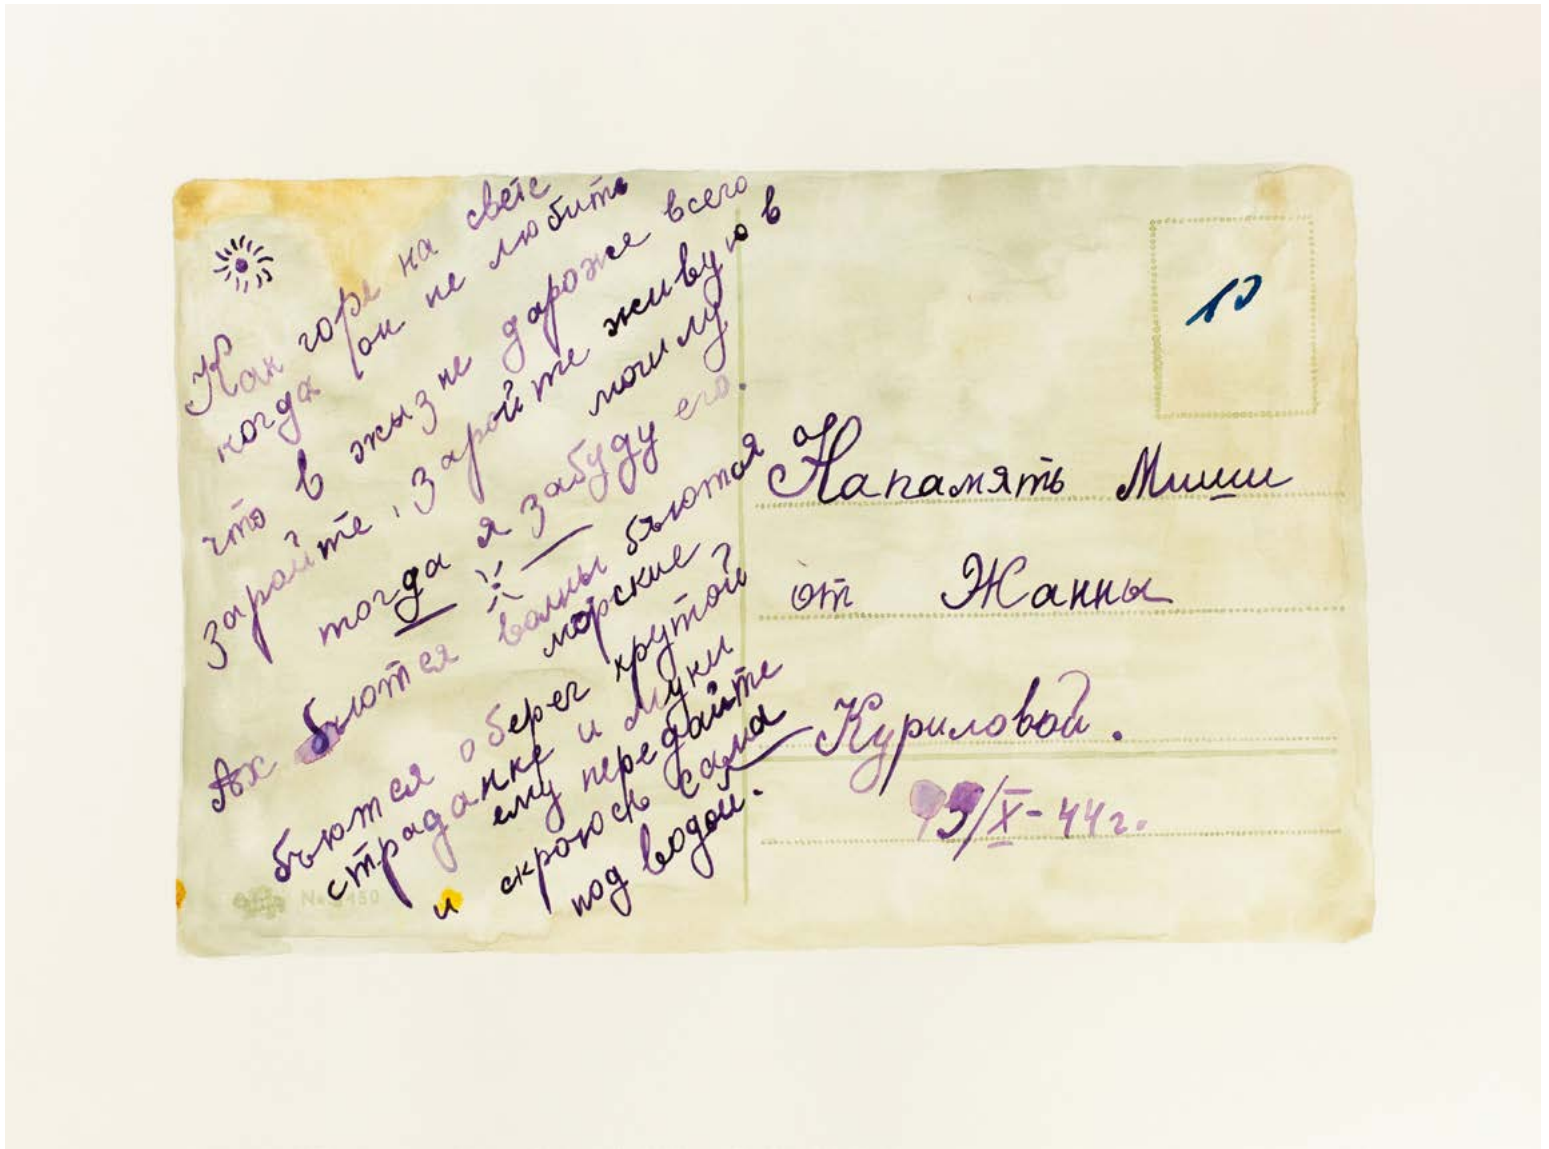 Как горе на свете
когда он не любить
что в жызне дароже всего
заройте, заройте живую в
могилу
тогда я забуду его.
Ах бьются волны бьются
морские
бьются о берег крутой
страданке и муки
ему передайте
и скроюсь сама
под водой.
10
Напамять Миши
от Жанны
Куриловой.
19/X-44г.